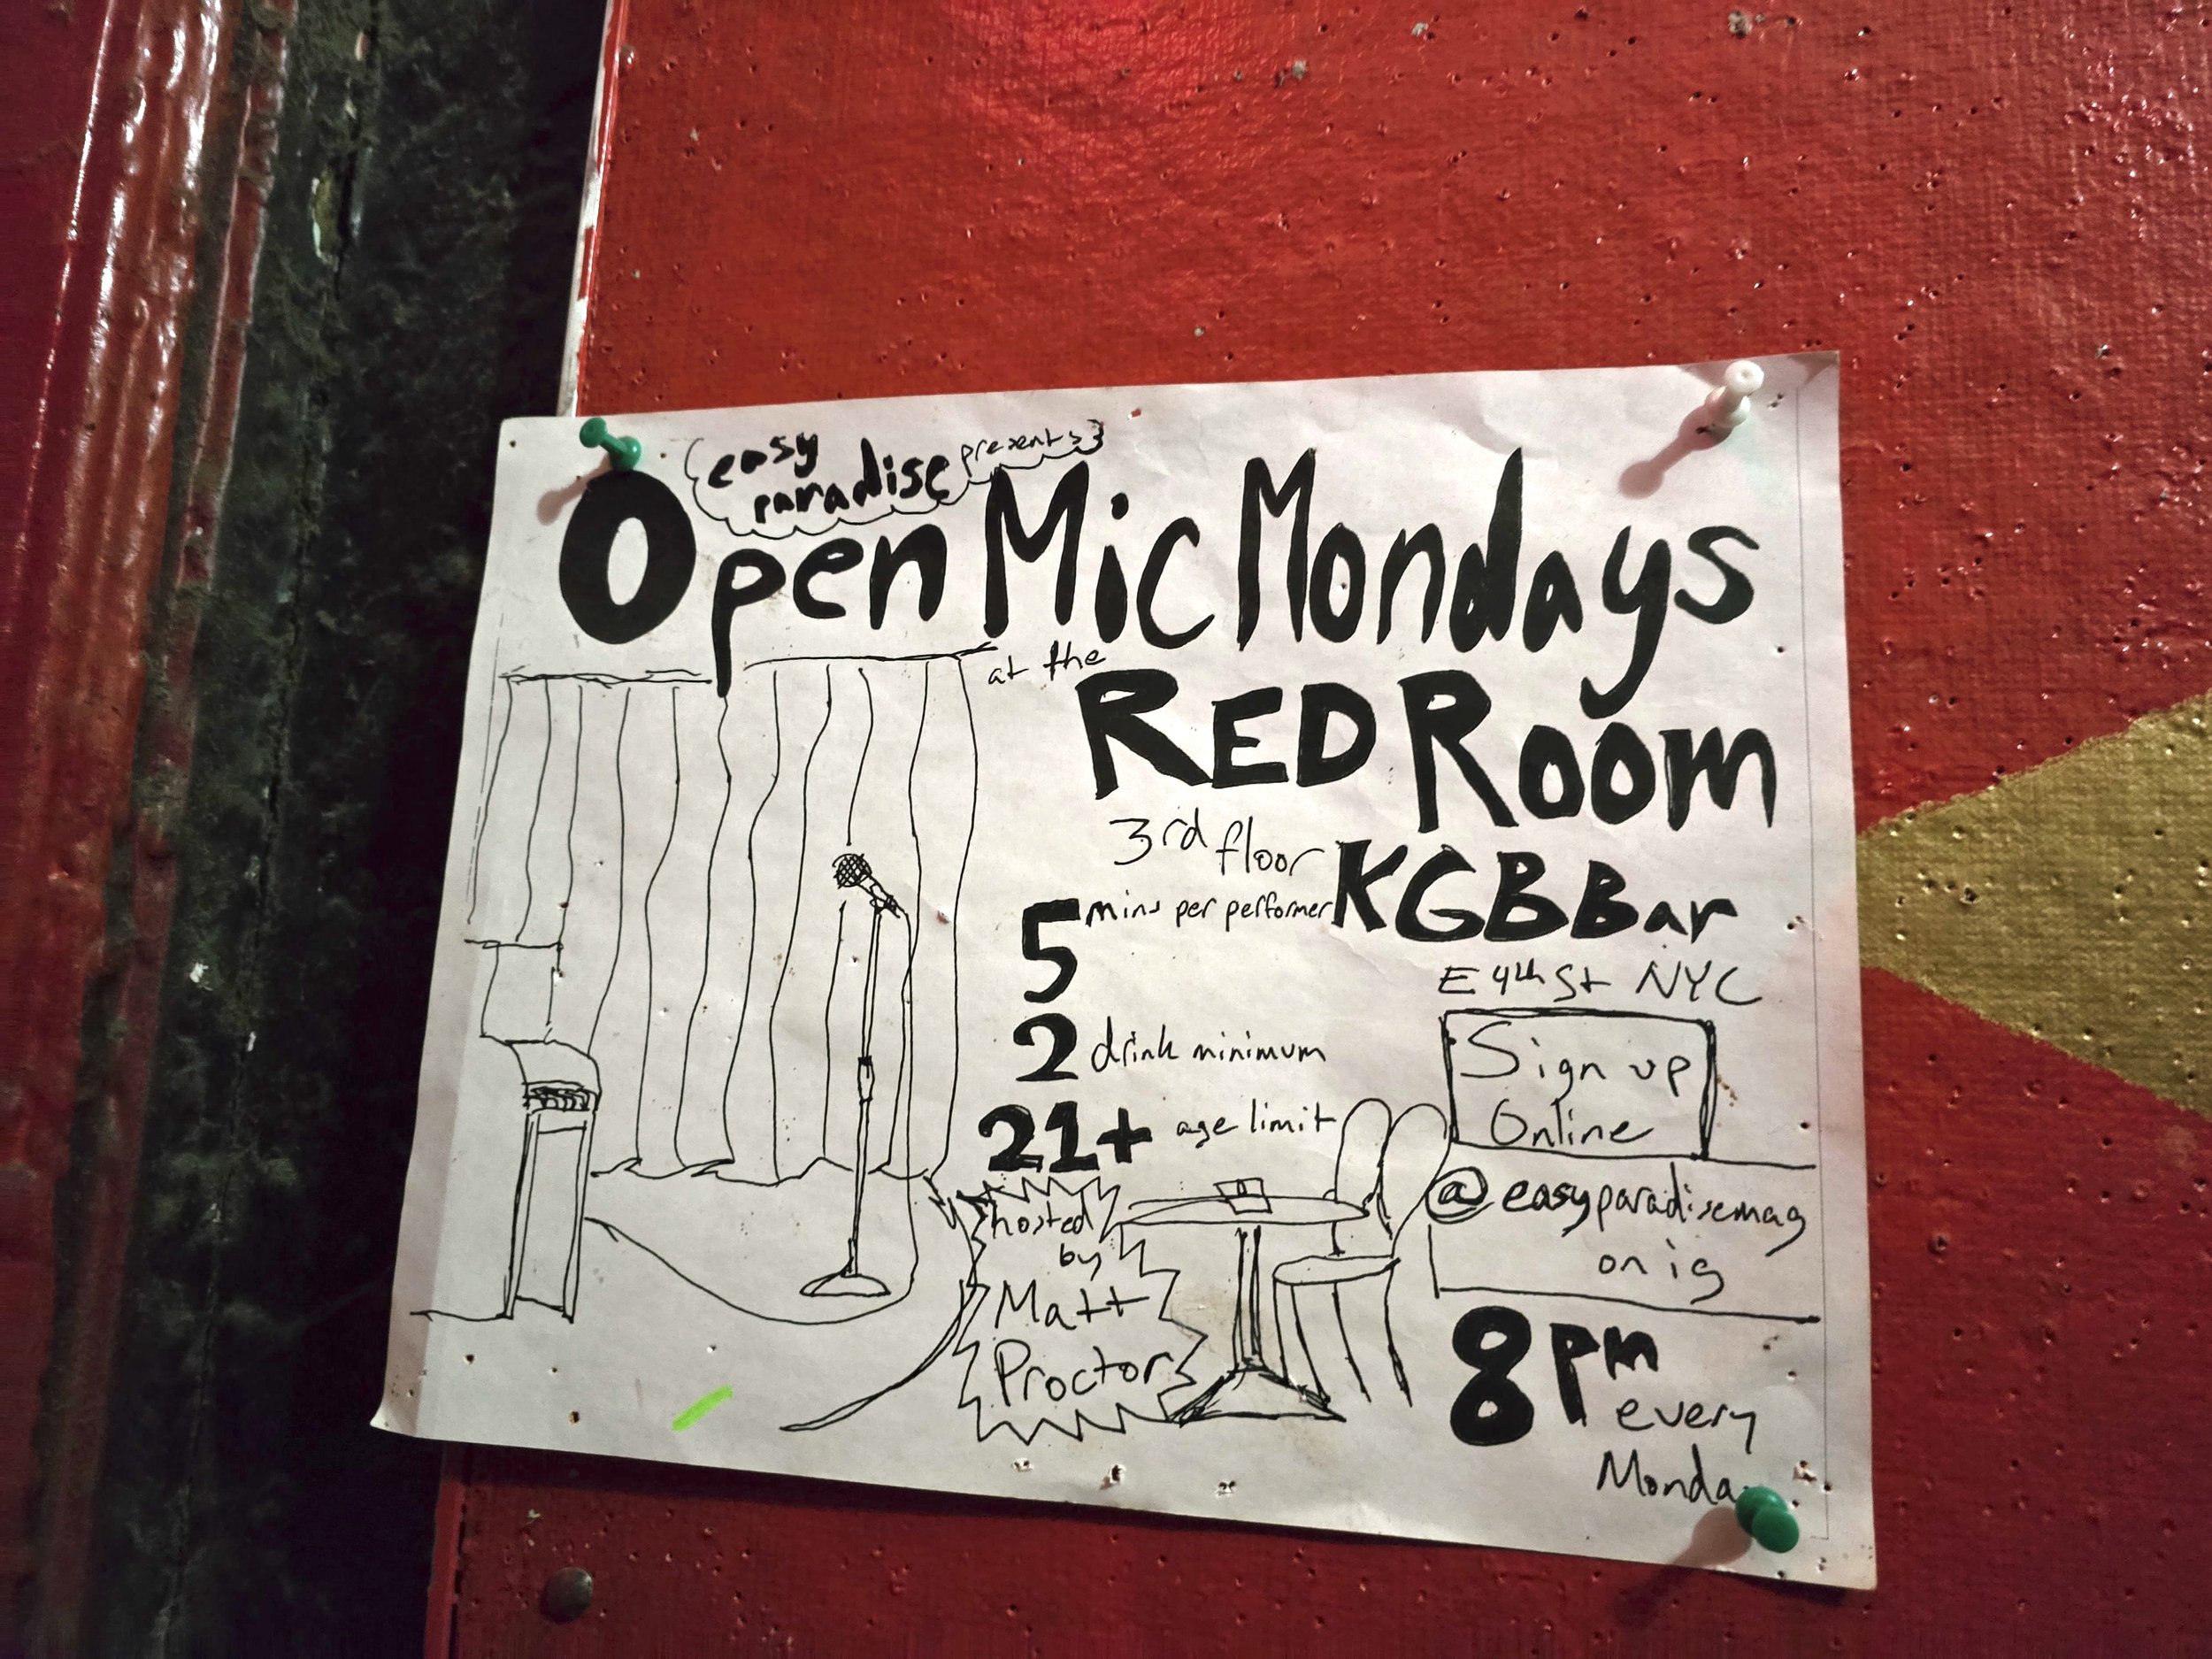 easy
paradise presents
Open Mic Mondays
at the
RED ROOM
3rd floor KGB Bar
E 4th St NYC
5 mins per performer
2 drink minimum
21+ age limit
hosted
by
Matt
Proctor
Sign up
Online
@easyparadisemag
on ig
8pm
every
Monda